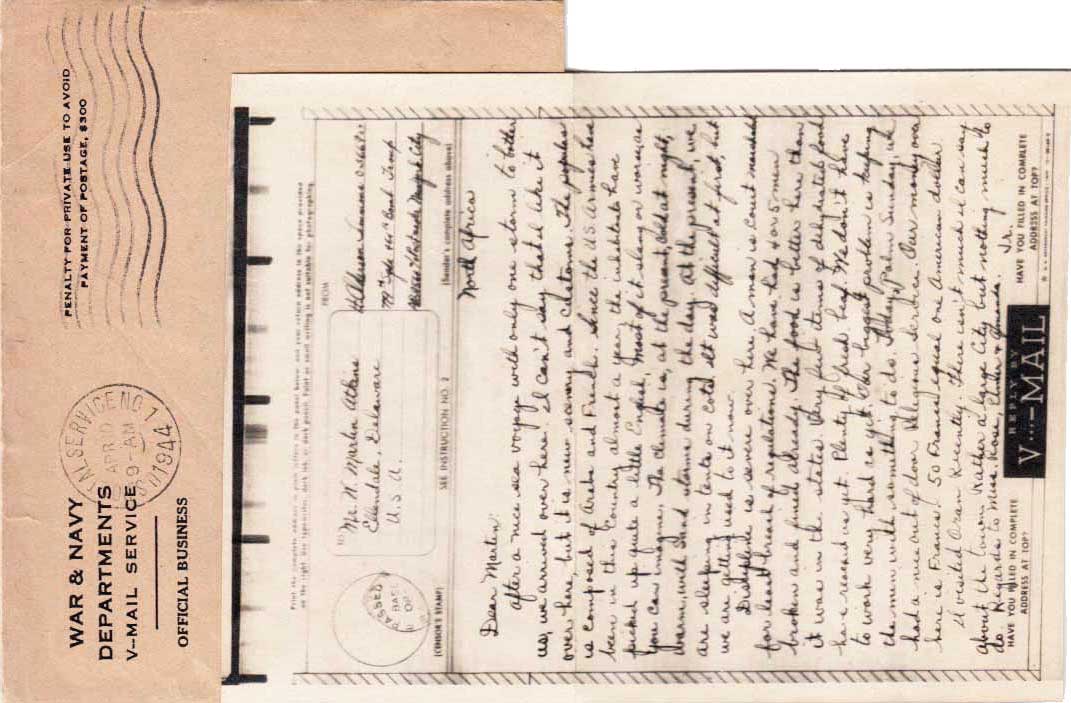 PENALTY FOR PRIVATE USE TO AVOID
PAYMENT OF POSTAGE, $300
WAR & NAVY
DEPARTMENTS
V-MAIL SERVICE
OFFICIAL BUSINESS
NO. 1
APR
9-AM
1944
Print the complete address in plain letters in the panel below, and your return address in the space provided
on the right. Use typewriter, dark ink, or dark pencil. Faint or small writing is not suitable for photographing.
TO
Mr. W. Martin Atkins
Ellendale, Delaware
U. S. A.
FROM
New York City
PASSED
BASE
(CENSOR'S STAMP)
SEE INSTRUCTION NO. 2
(Sender's complete address above)
North Africa
Dear Martin:
After a nice sea voyage with only one storm to bother
us, we arrived over here. I can't say that I like it
over here, but it is new scenery and customs. The peoples
is composed of Arabs and French. Since the U.S. Armies has
been in this country almost a year, the inhabitants have
picked up quite a little English, most of it slang or worse, as
you can imagine. The climate is, at the present, cold at night,
warm, with sand storms during the day. At the present, we
are sleeping in tents on cots. It was difficult at first, but
we are getting used to it now.
Disipline is severe over here. A man is court marshaled
for least breach of regulations. We have had 4 or 5 men
broken and fined already. The food is better here than
it was in the states. Very few items of dehydrated food
have reached us yet. Plenty of fresh beef. We don't have
to work very hard as yet. Our biggest problem is keeping
the men with something to do. Today, Palm Sunday, we
had a nice out of door religious service. Our money over
here is Francs. 50 Francs equal one American dollar.
I visited Oran recently. There isn't much I can say
about the town. Rather a large city, but nothing much to
do. Regards to Miss. Rose, &
Jr.
HAVE YOU FILLED IN COMPLETE
ADDRESS AT TOP?
REPLY BY
V...-MAIL
HAVE YOU FILLED IN COMPLETE
ADDRESS AT TOP?